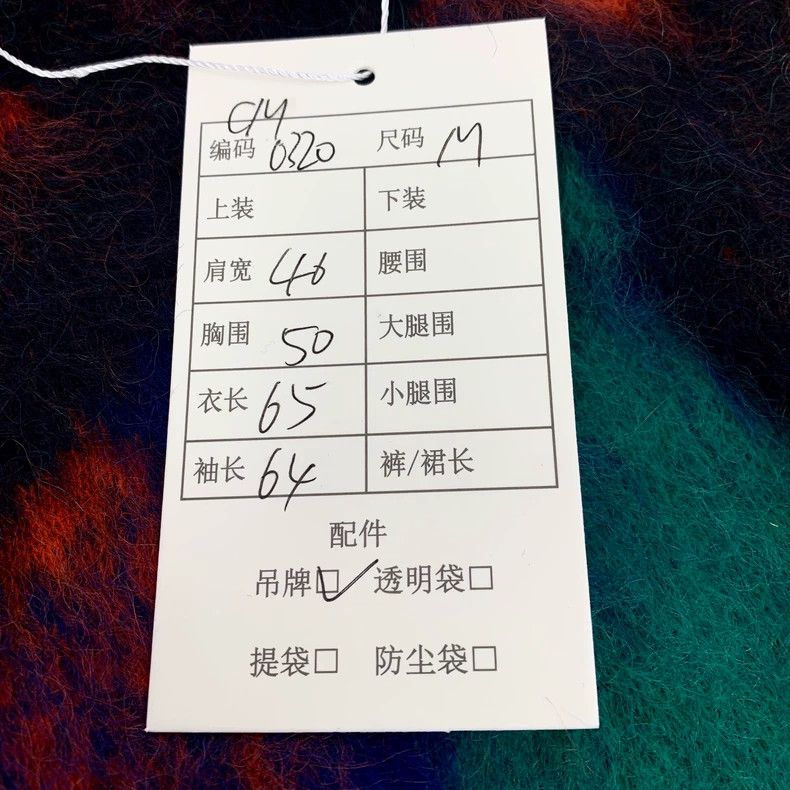 CM
编码 0320 尺码 M
上装 下装
肩宽 46 腰围
胸围 50 大腿围
衣长 65 小腿围
袖长 64 裤/裙长
配件
吊牌☑ 透明袋□
提袋□ 防尘袋□